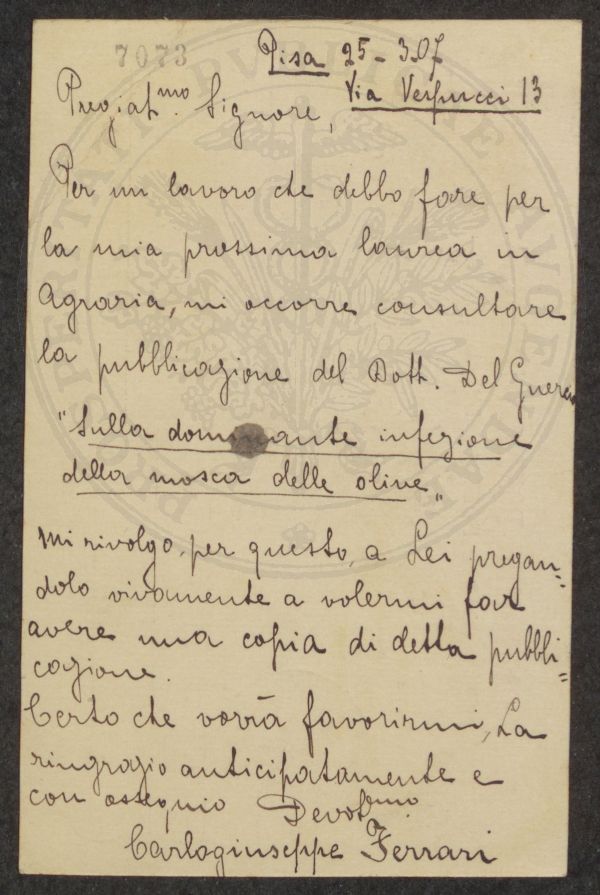 7073
Pisa 25-3.07
Via Vespucci 13
Pregiat.mo Signore,
Per un lavoro che debbo fare per
la mia prossima laurea in
Agraria, mi occorre consultare
la pubblicazione del Dott. Del Guercio
"Sulla dominante infezione
della mosca delle olive"
Mi rivolgo, per questo, a Lei pregan=
dolo vivamente a volermi far
avere una copia di detta pubbli=
cazione.
Certo che vorrà favorirmi, La
ringrazio anticipatamente e
con ossequio Devot.mo
Carlogiuseppe Ferrari